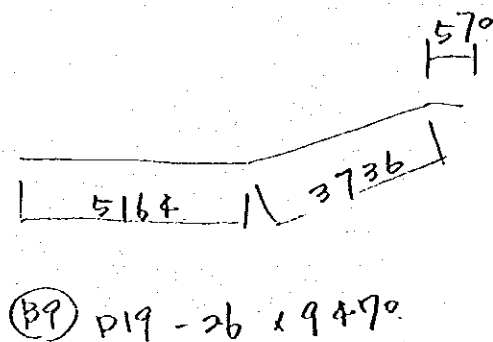 570
5164
3736
B9 D19 - 26 x 9470